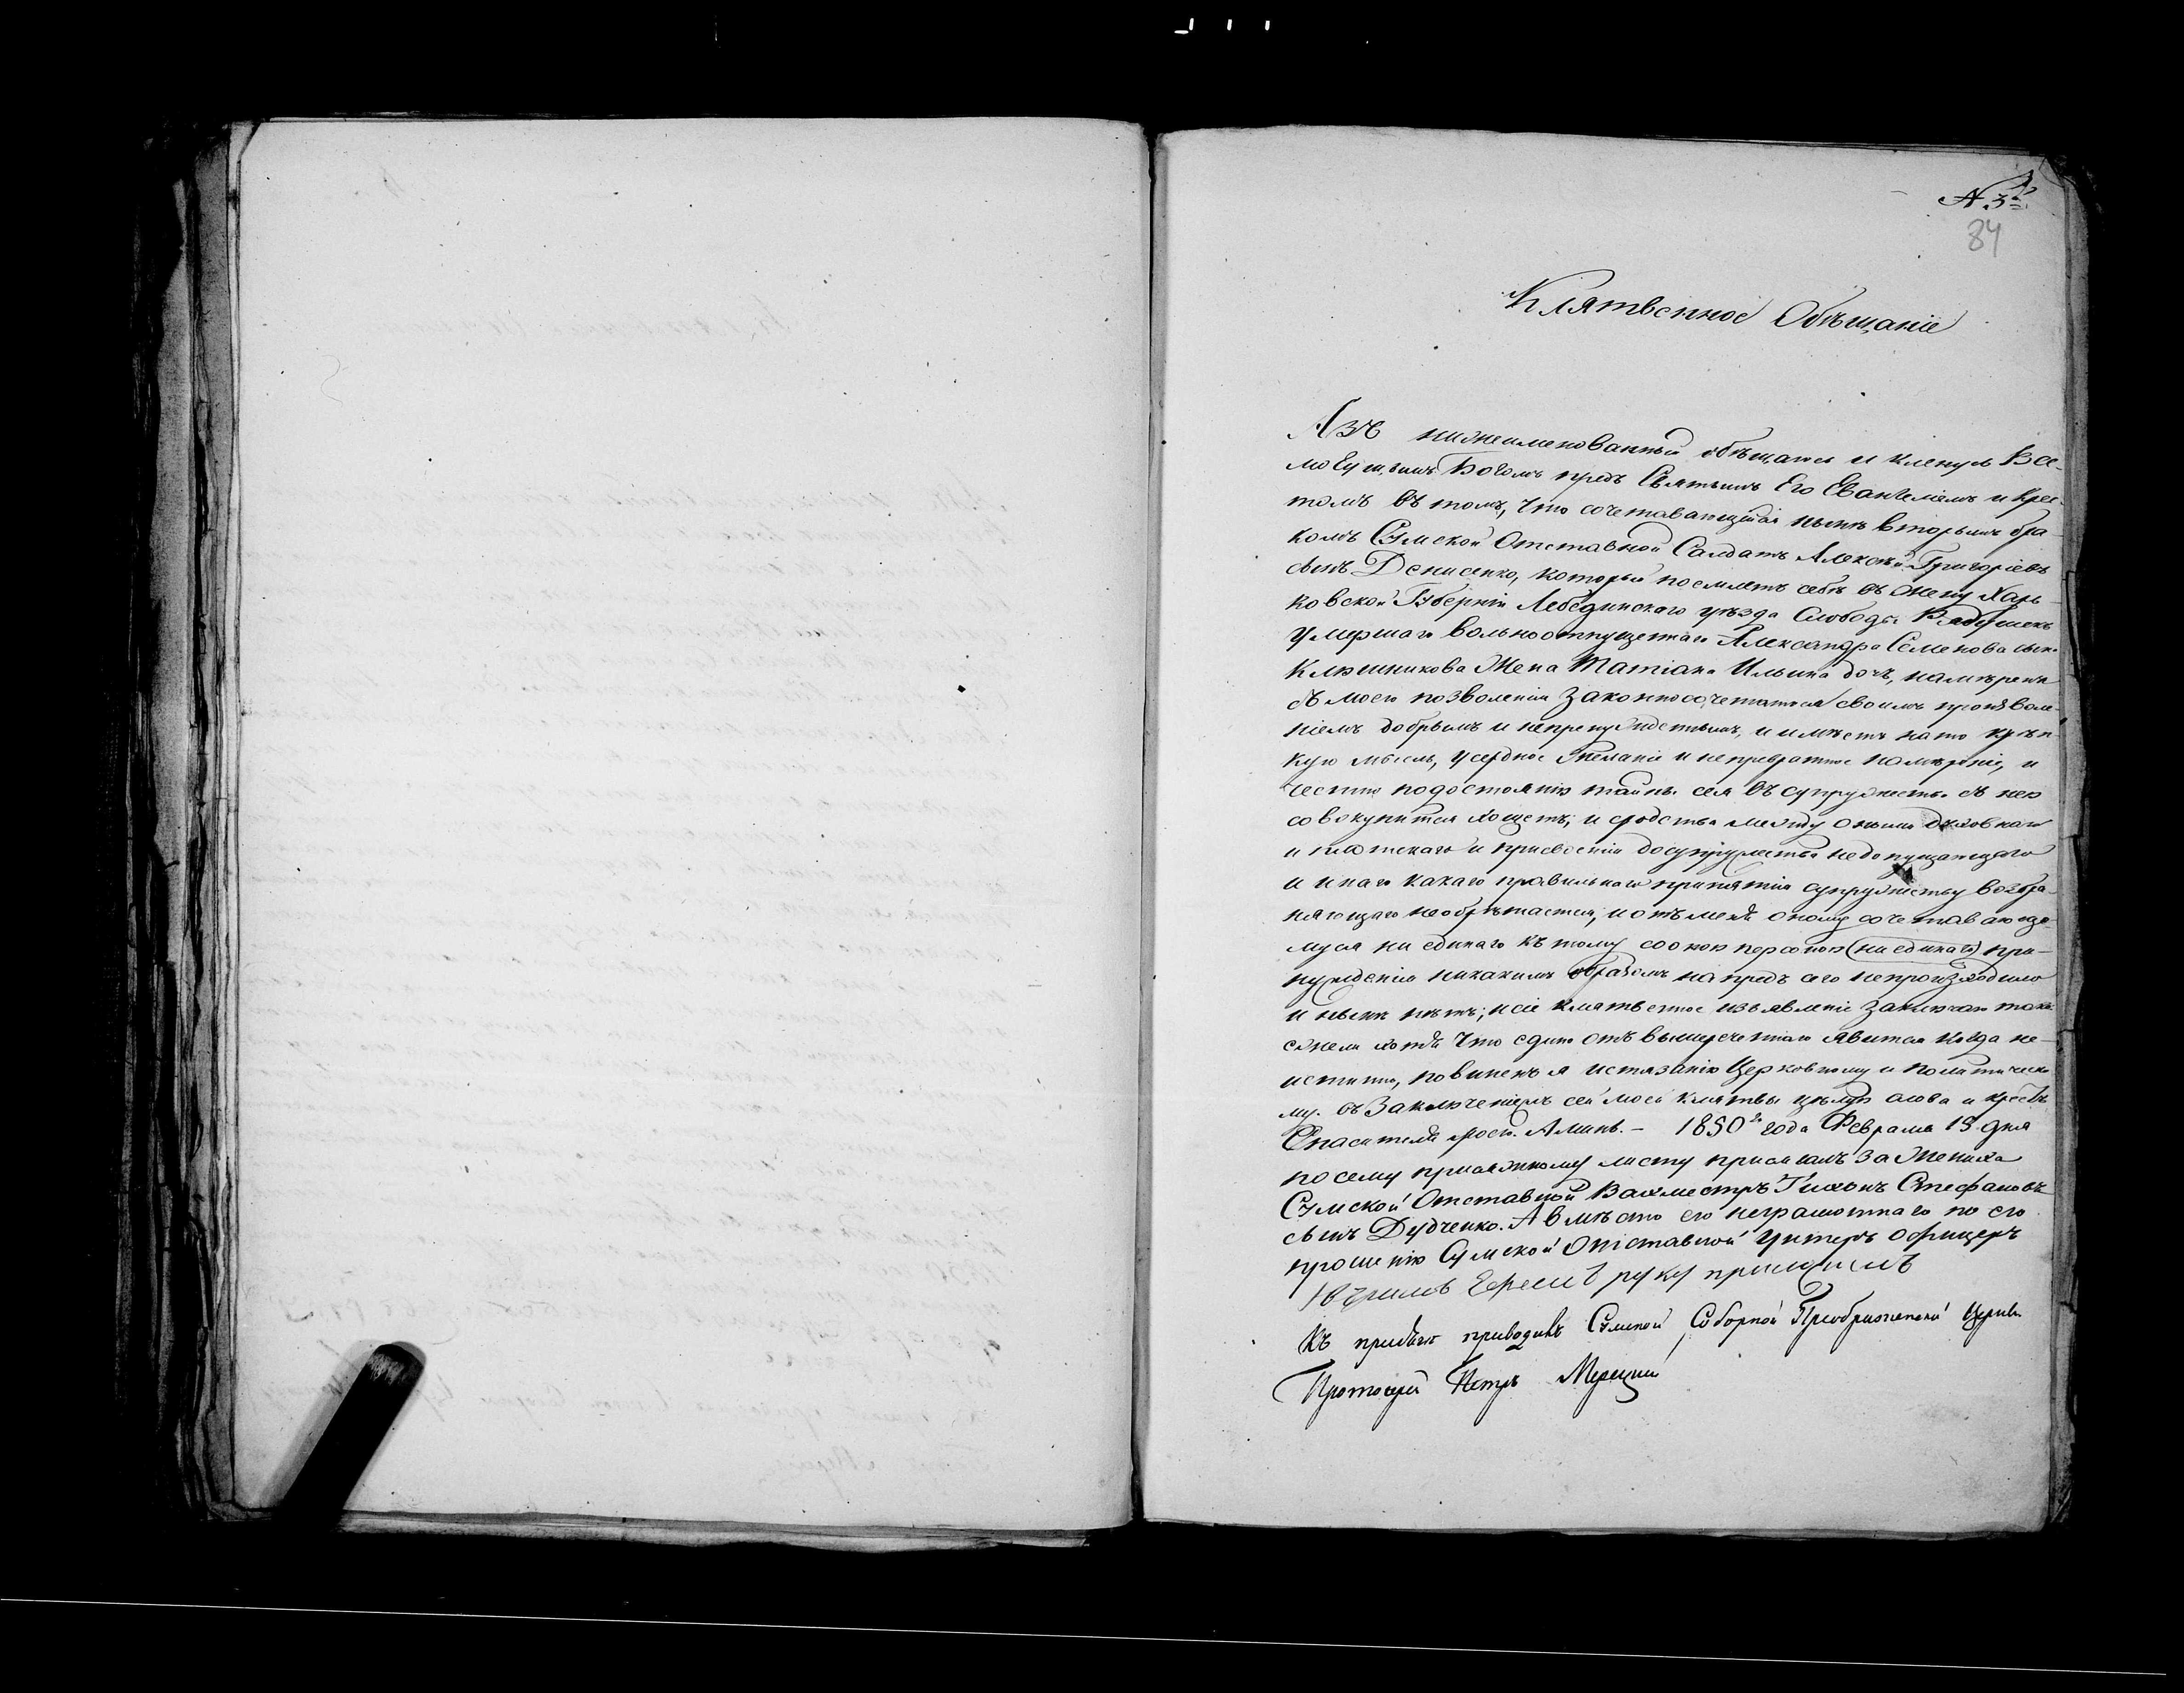 № 3й
84
Клятвенное Обѣщаніе
Азъ нижеименованный обѣщаюся и кленусь Все-
могущимъ Богомъ предъ Святымъ Его Евангеліемъ и Крес-
томъ въ томъ, что сочетавающійся нынѣ вторымъ бра-
комъ Сумской Отставной Салдатъ Алексѣй Григоріевъ
сынъ Денисенко, который поемлетъ себѣ въ жену Харь-
ковской Губерніи Лебединскаго уѣзда Слободы Рябушекъ
умершаго вольноотпущеннаго Александра Семенова сына
Ключникова Жена Татіана Ильина дочь, намѣренъ
съ моего позволенія законно сочетатися своимъ произволе-
ніемъ добрымъ и непренужденнымъ, и имѣетъ на то крѣп-
кую мысль, усердное желаніе и непревратное намѣреніе, и
честно по достоянію тайны сея въ супружество съ нею
совокупится хощетъ; и сродства между оными духовнаго
и плотскаго и присвоенія до супружества недопущающаго
и инаго какаго правильнаго припятія супружеству возбра-
няющаго необрѣтается; и отъ меня оному сочетавающе-
муся ни единаго къ тому со оною персоною (ни единаго) при-
нужденія никакимъ образомъ напредъ сего непроизходило
и нынѣ нѣтъ; и сіе клятвенное изъявленіе заключаю тако:
ежели хотя что едино отъ вышереченнаго явится когда не-
истинно, повиненъ я истязанію Церковному и политическо-
му. въ Заключеніемъ сей моей клятвы цѣлую слова и крестъ
Спасителя моего. Аминь. – 1850го года Февраля 19 дня
по сему присяжному листу присягалъ за Жениха
Сумской Отставной Вахмистръ Тихонъ Стефановъ
сынъ Дудченко. А вмѣсто его неграмотнаго по его
прошенію Сумской Отставной Унтеръ офицеръ
руку приложилъ
Къ присягѣ приводилъ Сумской Соборной Преображенской Церкви
Протоіерей Петръ